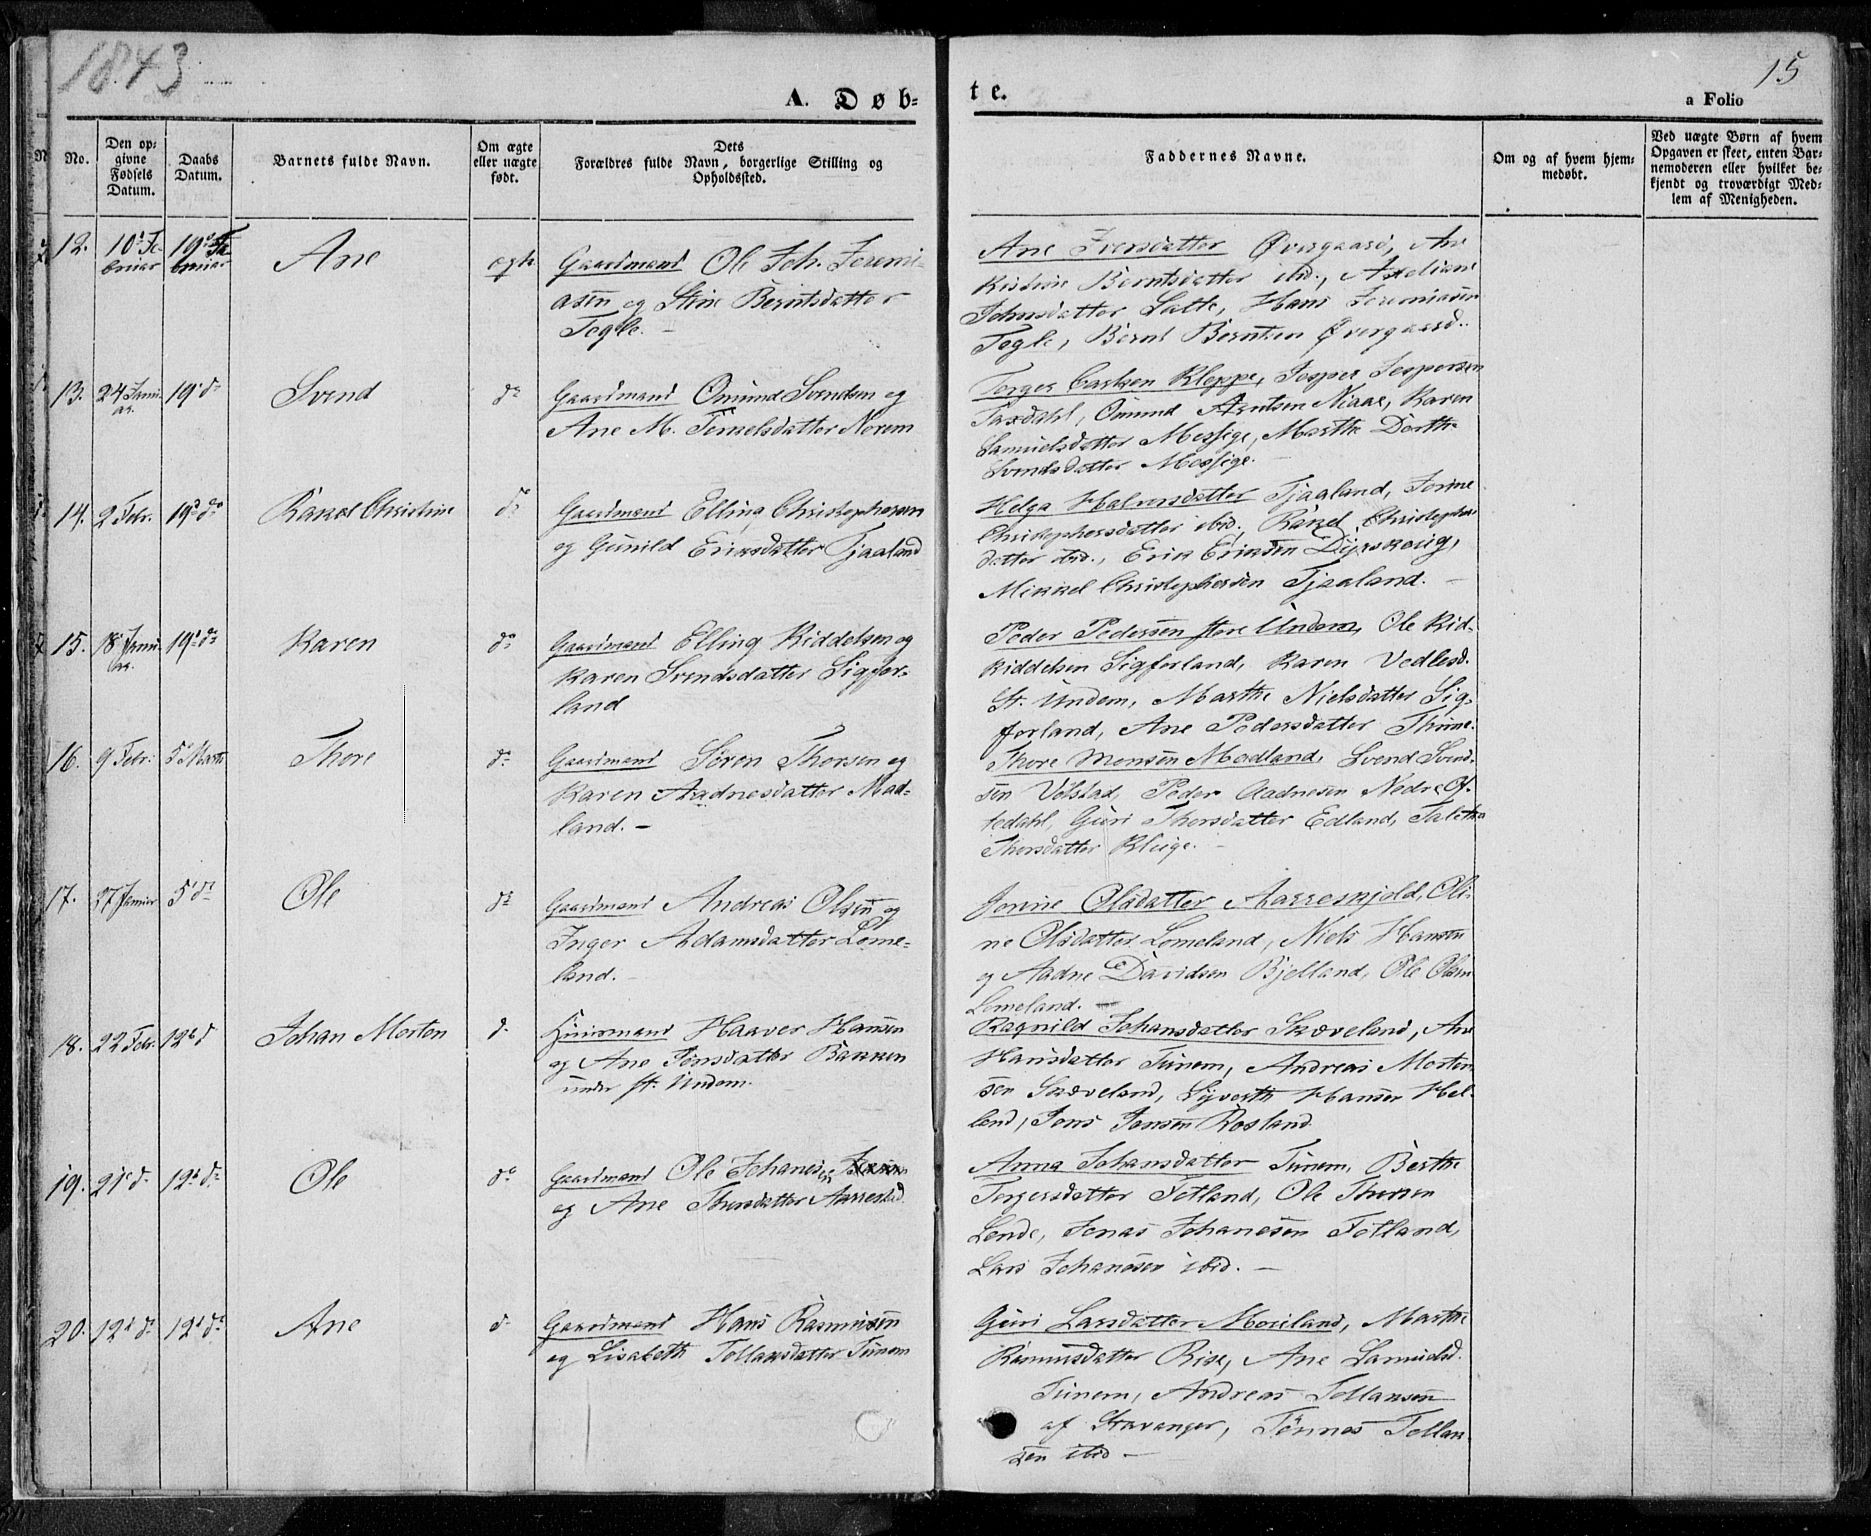 1843
15
A. Døb-
te.
a Folio
No.
Den op-
givne
Fødsels
Datum.
Daabs
Datum.
Barnets fulde Navn.
Om ægte
eller uægte
født.
Dets
Forældres fulde Navn, borgerlige Stilling og
Opholdssted.
Faddernes Navne.
Om og af hvem hjem-
medøbt.
Ved uægte Børn af hvem
Opgaven er skeet, enten Bar-
nemoderen eller hvilket be-
kjendt og troværdigt Med-
lem af Menigheden.
12.
10d Fe-
bruar
19d Fe-
bruar
Ane
ægte
Gaardmand Ole Joh. Jeremi-
asen og Stine Berntsdatter
Tegle. -
Ane Iversdatter Øvergaard, An
Kistine Berntsdatter ibid.,
Johnsdatter Latte, Hans Jeremiasen
Tegle, Bernt Berntsen Øvergaard.
13.
24 Janu
ar.
19 do
Svend
do
Gaardmand Omund Svendsen og
Ane M. Temelsdatter Nærem
Torger Carlsen Kleppe, Jesper Jespersen
Taxdahl, Omund Arntsen Niaae, Karen
Samuelsdatter Mossige, Marthe Dorthe
Svendsdatter Mossige. -
14.
2 Febr.
19d do
Rakel Christine
do
Gaardmand Elling Christophersen
og Gunild Eriksdatter Tjaaland
Helga Halversdatter Tjaaland, Jorine
Christophersdatter ibid. Rakel Christophers
datter ibid., Erik Eriksen Dyrskoug,
Mikkel Christophersen Tjaaland. -
15.
18 Janu
ar.
19d do
Karen
do
Gaardmand Elling Kiddelsen og
Karen Svendsdatter Sigfor-
land
Peder Pedersen store Undem, Ole Kid-
Kiddelsen Sigforland, Karen Vedlesd.
St. Undem, Marthe Nielsdatter Sig-
forland, Ane Pedersdatter Thime.
16.
9 Febr.
5 Marts
Thore
do
Gaardmand Sören Thorsen og
Karen Aadnesdatter Mad-
land. -
Thore Monsen Madland, Svend Svend-
sen Völstad, Peder Aadnesen Nedre Of-
tedahl, Guri Thorsdatter Edland, Talethe
Thorsdatter Kluge. -
17.
27 Januar
5 do
Ole
do
Gaardmand Andreas Olsen og
Inger Adamsdatter Lome-
land.
Jorine Olsdatter Aarreskjold, Oli-
ne Olsdatter Lomeland, Niels Hansen
og Aadne Davidsen Bjelland, Ole Olsen
Lomeland. -
18.
22 Febr.
12d d
Johan Morten
d.
Huusmand Haaver Hansen
og Ane Jonsdatter Bakken
under st. Undem.
Ragnild Johansdatter Skæveland, An
Hansdatter Tunem, Andreas Morten
sen Skæveland, Syverth Hansen Hel-
land, Jens Jensen Rosland.
19.
21d d.
12d do
Ole
do
Gaardmand Ole Johanesen
og Ane Thorsdatter Aarrestad.
Anna Johansdatter Tunem, Berthe
Torgersdatter Fotland, Ole Thorsen
Lende, Jonas Johanesen Fotland,
Lars Johanesen ibid. -
20.
12d do
12d do
Ane
d.
Gaardmand Hans Rasmusen
og Lisabeth Tollaksdatter Tunem
Guri Larsdatter Moriland, Marthe
Rasmusdatter Rise, Ane Samuelsd.
Tunem, Andreas Tollaksen
af Stavanger, Tønnes Tollak-
sen ibid -